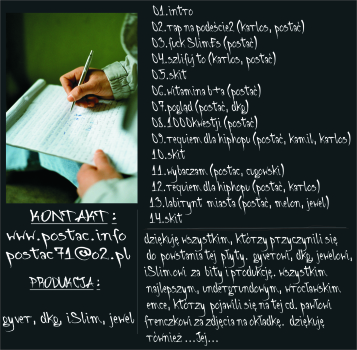 01.intro
02.rap na podeście2 (karlos, postać)
03.fuck SlimEs (postać)
04.szlifuj to (karlos, postać)
05.skit
06.witamina b+a (postać)
07.pogląd (postać, dkg)
08.1000kwestji (postać)
09.requiem dla hiphopu (postać, kamil, karlos)
10.skit
11.wybaczam (postac, cugowski)
12.requiem dla hiphopu (postać, karlos)
13.labirynt miasta (postać, melon, jewel)
14.skit
KONTAKT:
www.postac.info
postac71@o2.pl
PRODUKCJA:
gyver, dkg, iSlim, jewel
dziękuję wszystkim, którzy przyczynili się
do powstania tej płyty. gyverowi, dkg, jewelowi,
iSlimowi za bity i produkcję. wszystkim
najlepszym, undergrundowym, wrocławskim
emce, którzy pojawili się na tej cd. pawłowi
frenczkowi za zdjęcia na okładkę. dziękuję
również ...Jej...